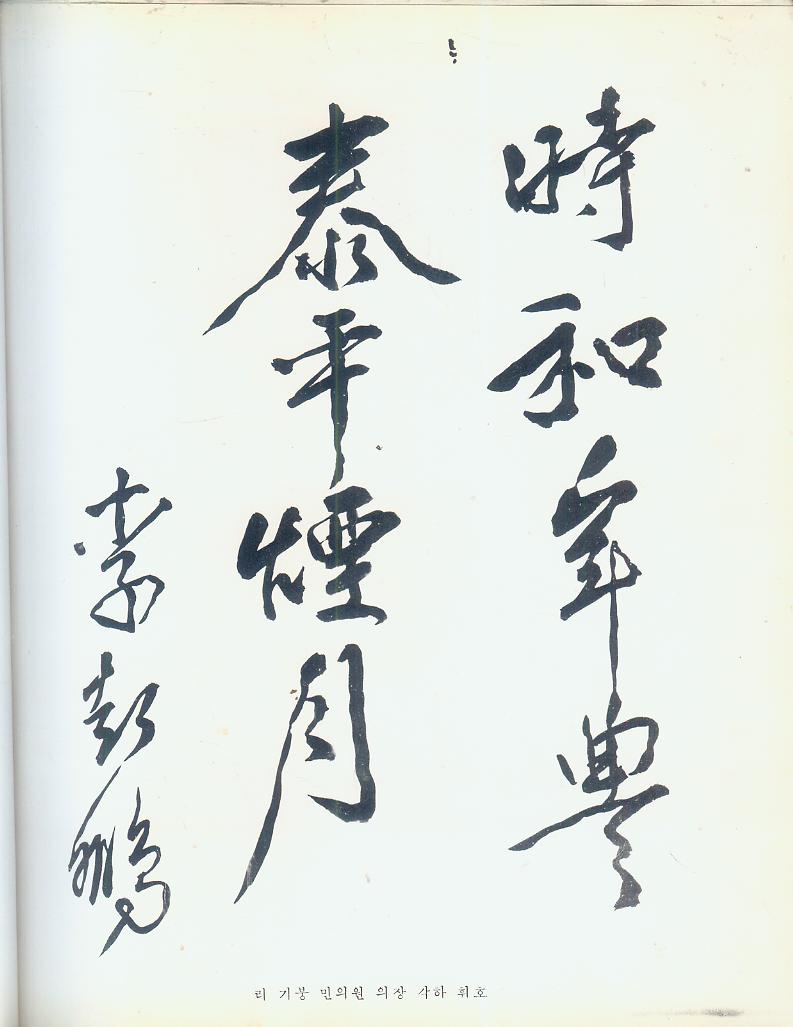 時和年豊
泰平煙月
李起鵬
리 기붕 민의원 의장 사하 휘호